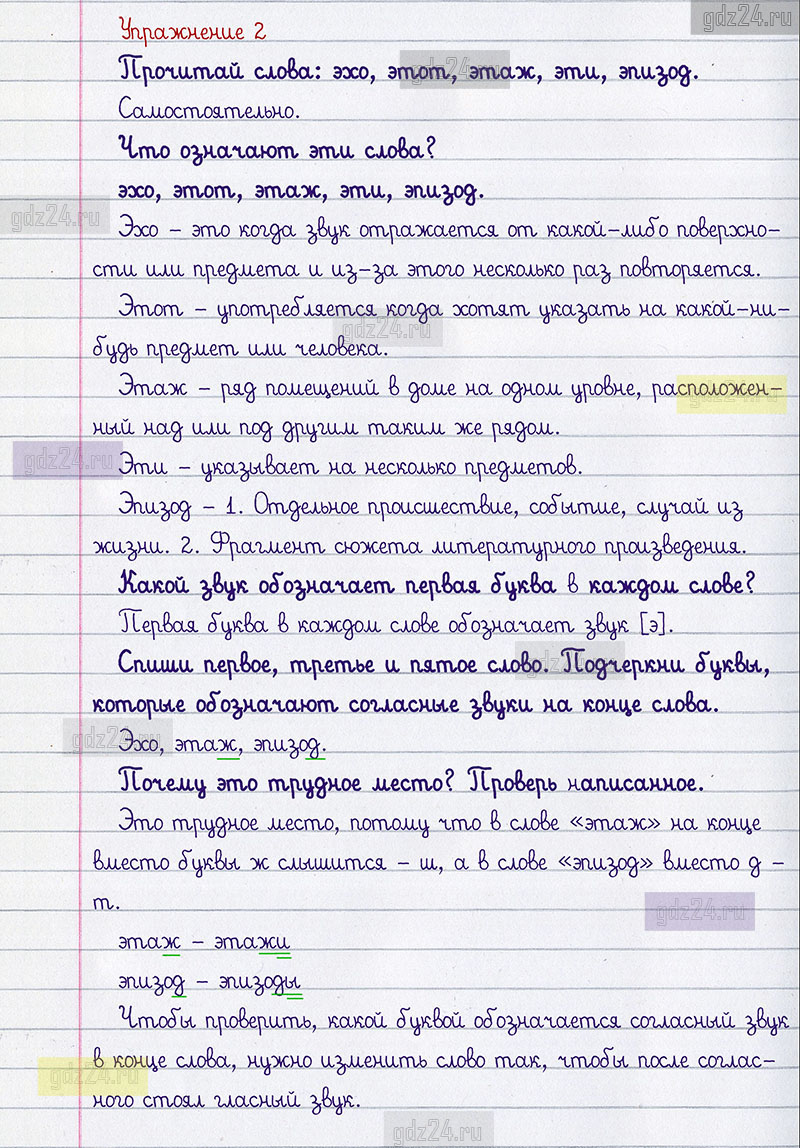 gdz24.ru
Упражнение 2
Прочитай слова: эхо, этот, этаж, эти, эпизод.
gdz24.ru
Самостоятельно.
Что означают эти слова?
эхо, этот, этаж, эти, эпизод.
gdz24.ru
Эхо – это когда звук отражается от какой-либо поверхно-
сти или предмета и из-за этого несколько раз повторяется.
Этот – употребляется когда хотят указать на какой-ни-
gdz24.ru
будь предмет или человека.
Этаж – ряд помещений в доме на одном уровне, расположен-
gdz24.ru
ный над или под другим таким же рядом.
gdz24.ru
Эти – указывает на несколько предметов.
Эпизод – 1. Отдельное происшествие, событие, случай из
жизни. 2. Фрагмент сюжета литературного произведения.
Какой звук обозначает первая буква в каждом слове?
Первая буква в каждом слове обозначает звук [э].
Спиши первое, третье и пятое слово. Подчеркни буквы,
gdz24.ru
которые обозначают согласные звуки на конце слова.
gdz24.ru
Эхо, этаж, эпизод.
Почему это трудное место? Проверь написанное.
Это трудное место, потому что в слове «этаж» на конце
вместо буквы ж слышится – ш, а в слове «эпизод» вместо д –
т.
gdz24.ru
этаж – этажи
эпизод – эпизоды
Чтобы проверить, какой буквой обозначается согласный звук
в конце слова, нужно изменить слово так, чтобы после соглас-
gdz24.ru
ного стоял гласный звук.
gdz24.ru